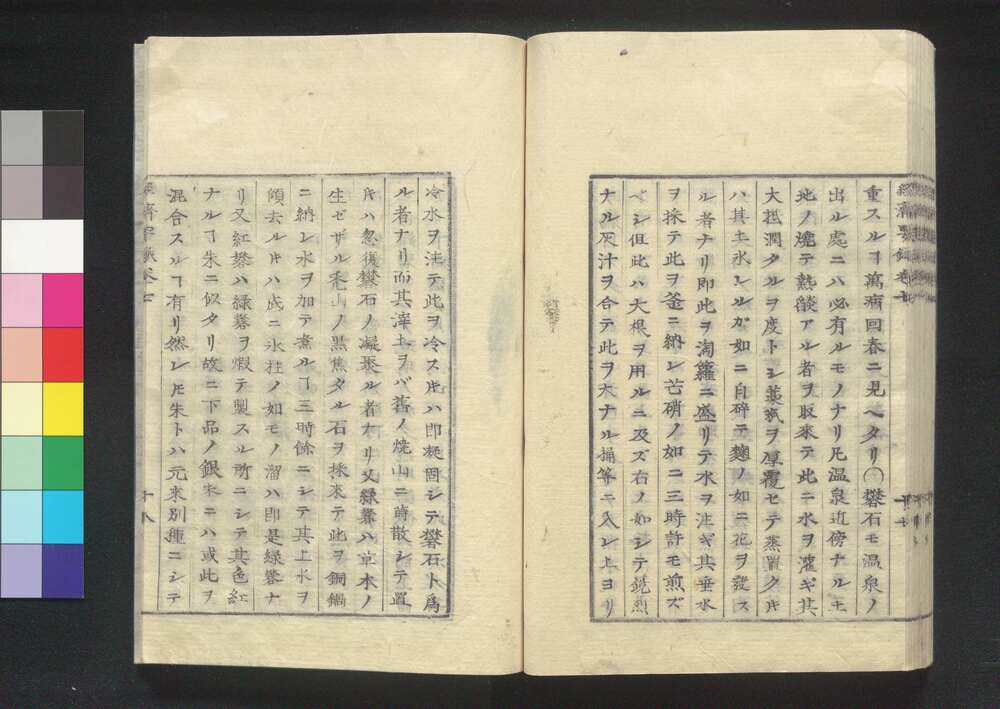 重スルヿ萬病回春ニ見ヘタリ〇礬石モ温泉ノ
出ル處ニハ必有ルモノナリ凡温泉近傍ナル土
地ノ燒テ熱𦦨アル者ヲ取來テ此ニ水ヲ灌ギ其
大抵潤タルヲ度トシ藁薦ヲ厚覆セテ蒸置クキ
ハ其土氷シルガ如ニ自碎テ麹ノ如ニ花ヲ發ス
ル者ナリ即此ヲ淘籮ニ盛リテ水ヲ注ギ其垂水
ヲ採テ此ヲ釜ニ納レ芒硝ノ如ニ三時許モ煎ズ
ベシ但此ハ大根ヲ用ルニ及ズ右ノ如シテ鋭烈
ナル灰汁ヲ合テ此ヲ大ナル桶等ニ入レ上ヨリ
冷水ヲ注テ此ヲ冷ス时ハ即凝固シテ礬石ト爲
ル者ナリ而其滓土ヲバ舊ノ燒山ニ蒔散シテ置
时ハ忽復礬石ノ凝聚ル者ナリ又緑礬ハ草木ノ
生ゼザル禿山ノ黒焦タル石ヲ採來テ此ヲ銅鍋
ニ納レ水ヲ加テ煮ルヿ三時餘ニシテ其上水ヲ
傾去ル时ハ底ニ氷柱ノ如モノ溜ハ即是緑礬ナ
リ又紅礬ハ緑礬ヲ煆テ製スル所ニシテ其色紅
ナルヿ朱ニ似タリ故ニ下品ノ銀朱ニハ或此ヲ
混合スルヿ有リ然レ𪜈朱トハ元來別種ニシテ
十八